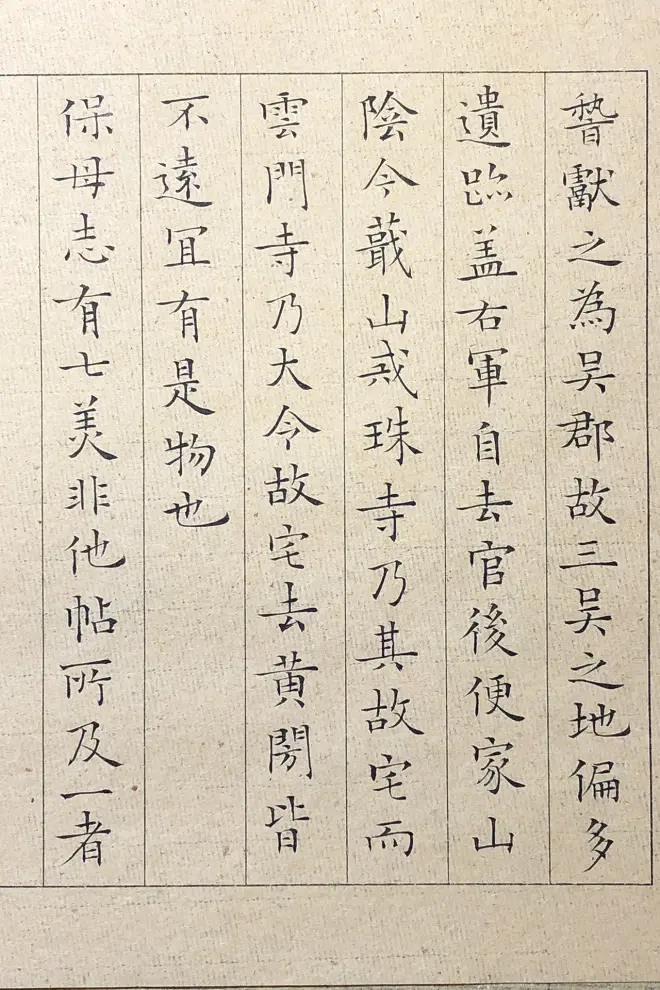 嘗獻之為吳郡故三吳之地偏多
遺跡盖右軍自去官後便家山
陰今蕺山戒珠寺乃其故宅而
雲門寺乃大令故宅去黄閍皆
不遠冝有是物也
保母志有七美非他帖所及一者